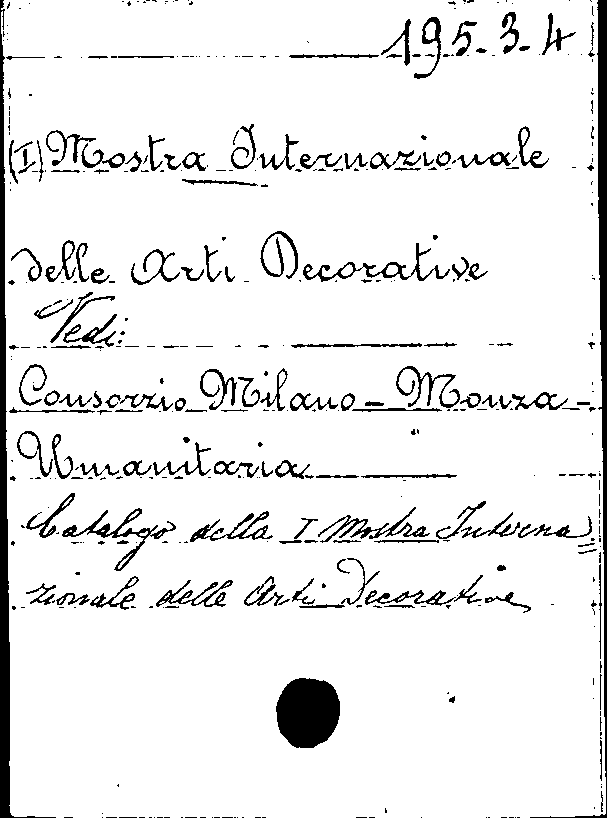 195.3.4
(I) Mostra Internazionale
delle Arti Decorative
Vedi:
Consorzio Milano - Monza -
Umanitaria
Catalogo della I Mostra Interna=
zionale delle Arti Decorative